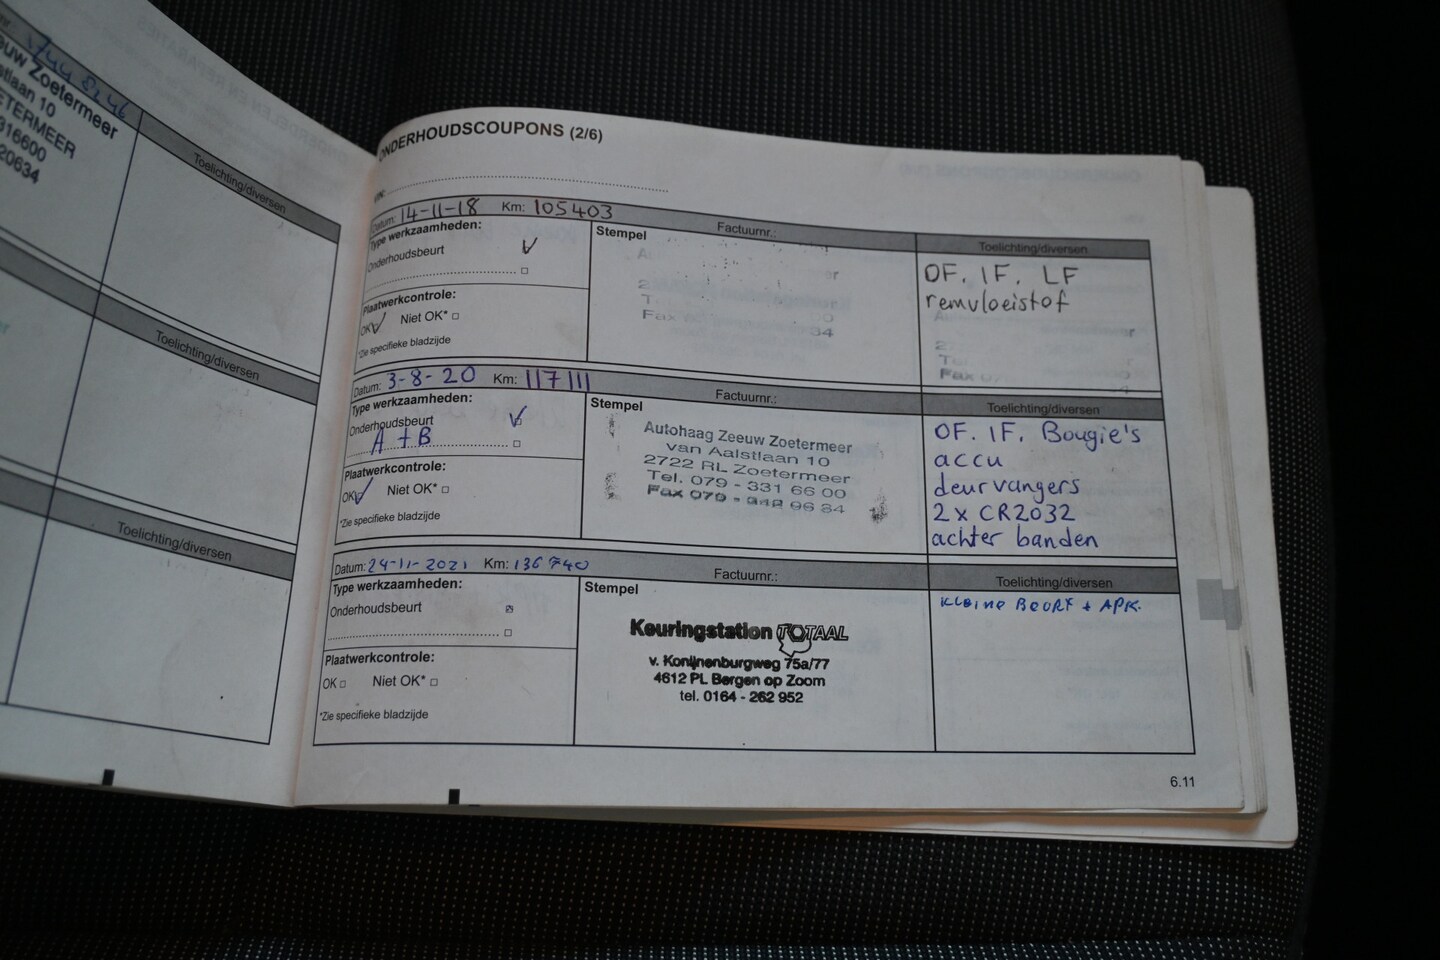 744 8246
euw Zoetermeer
stlaan 10
ETERMEER
316600
20634
Toelichting/diversen
Toelichting/diversen
Toelichting/diversen
ONDERHOUDSCOUPONS (2/6)
Datum: 14-11-18 Km: 105403 Factuurnr.:
Type werkzaamheden:
Onderhoudsbeurt
Plaatwerkcontrole:
OK Niet OK*
*Zie specifieke bladzijde
Stempel
Fax 34
Toelichting/diversen
OF. IF. LF
remvloeistof
Fax
Datum: 3-8-20 Km: 117111 Factuurnr.:
Type werkzaamheden:
Onderhoudsbeurt
A + B
Plaatwerkcontrole:
OK Niet OK*
*Zie specifieke bladzijde
Stempel
Autohaag Zeeuw Zoetermeer
van Aalstlaan 10
2722 RL Zoetermeer
Tel. 079 - 331 66 00
Fax 079 - 342 96 34
Toelichting/diversen
OF. IF. Bougie's
accu
deurvangers
2 x CR2032
achter banden
Datum: 24-11-2021 Km: 136740 Factuurnr.:
Type werkzaamheden:
Onderhoudsbeurt
Plaatwerkcontrole:
OK Niet OK*
*Zie specifieke bladzijde
Stempel
Keuringstation TOTAAL
v. Konijnenburgweg 75a/77
4612 PL Bergen op Zoom
tel. 0164 - 262 952
Toelichting/diversen
KLEINE BEURT + APK.
6.11